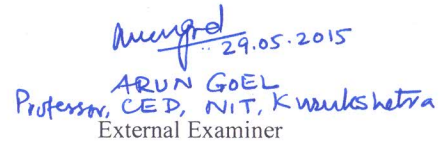 29.05.2015
ARUN GOEL
Professor, CED, NIT, Kurukshetra
External Examiner